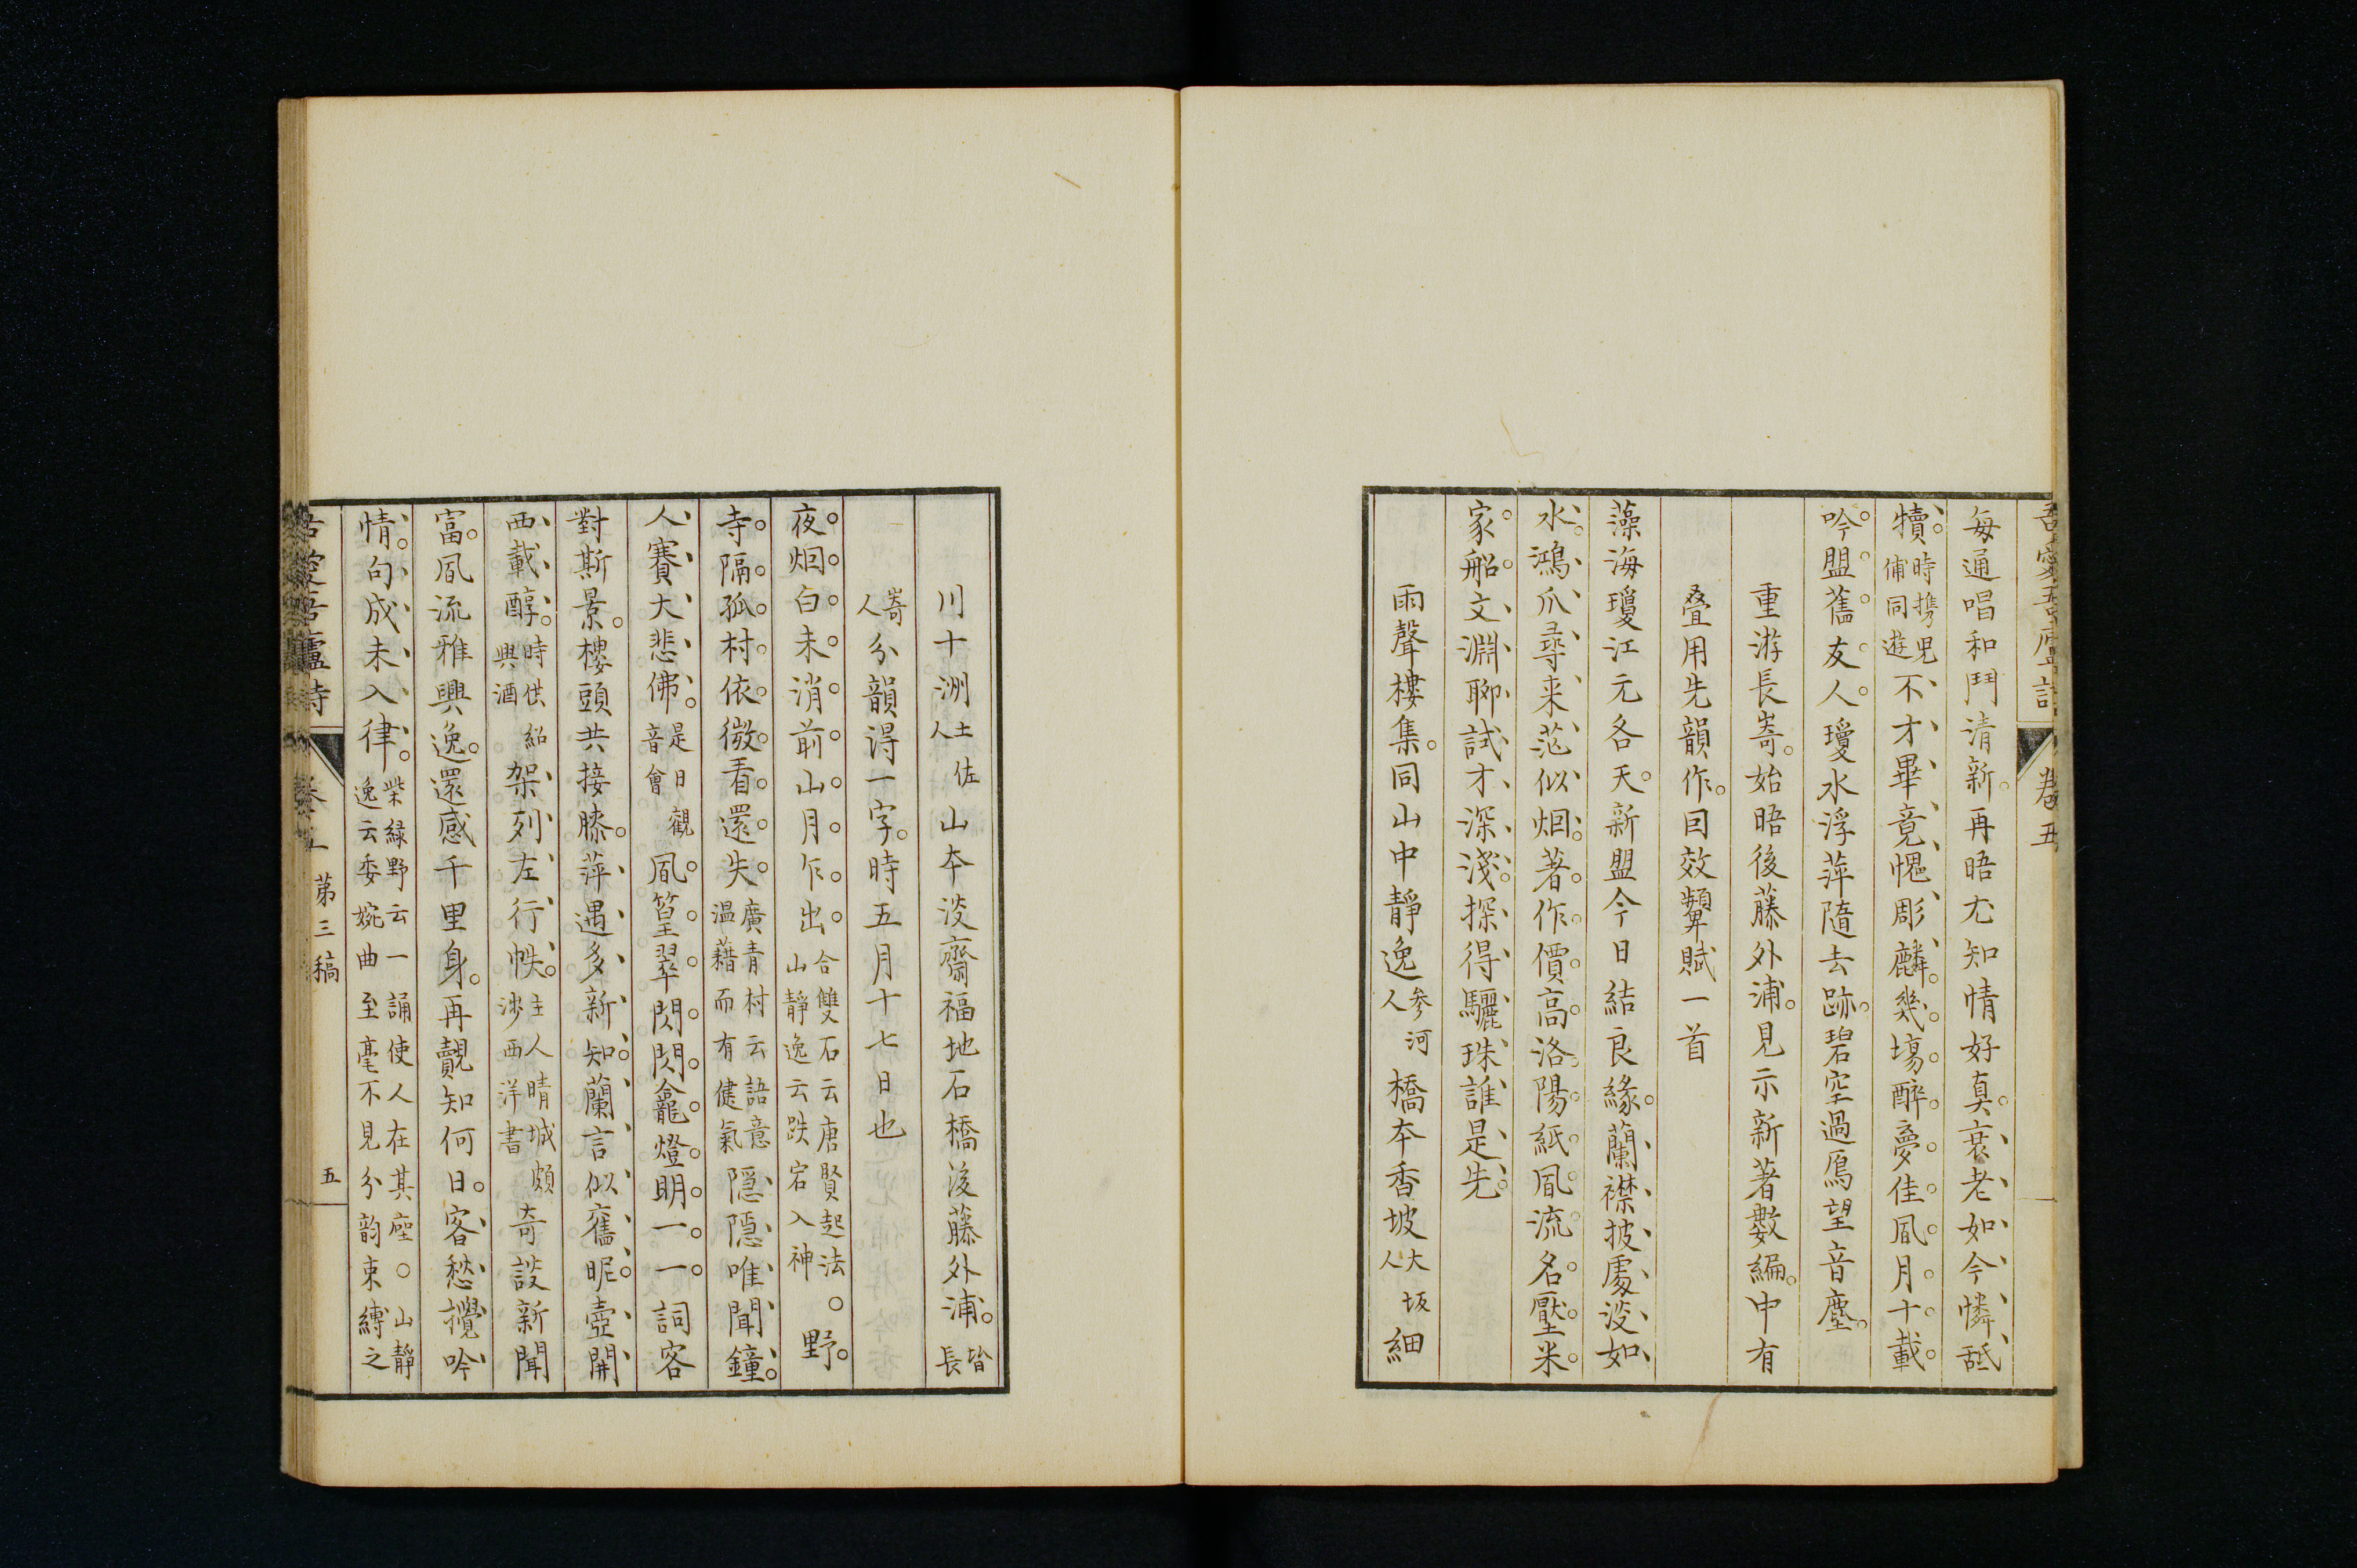 吾愛吾廬詩 卷五
每通唱和鬥清新。再晤尤知情好真。衰老如今憐舐
犢。時携児俌同遊不才畢竟愧彫麟。幾塲醉夢佳凬月。十載
吟盟舊友人。瓊水浮萍隨去跡。碧空過鴈望音塵。
重游長嵜。始晤後藤外浦。見示新著數編。中有
叠用先韻作。囙效顰賦一首
藻海瓊江元各天。新盟今日結良緣。蘭襟披處淡如
水。鴻爪尋来茫似烟。著作價高洛陽紙。凬流名壓米
家船。文淵聊試才深淺。探得驪珠誰是先。
雨聲樓集。同山中靜逸参河人橋本香坡大坂人細
川十洲土佐人山本淡齋福地石橋後藤外浦。皆長
嵜人分韻得一字。時五月十七日也
夜烟白未消前山月乍出。合雙石云唐賢起法○山靜逸云跌宕入神野。
寺隔孤村依微看還失。廣青村云語意温藉而有健氣隠隠唯聞鐘。
人賽大悲佛。是日觀音會凬篁翠閃閃龕燈明一一。詞客
對斯景。樓頭共接膝。萍遇多新知。蘭言似舊昵。壺開
西載醇。時供紹興酒架列左行帙。主人晴城頗渉西洋書奇談新聞
富。凬流雅興逸。還感千里身。再覿知何日。客愁攪吟
情。句成未入律。柴緑野云一誦使人在其座○山靜逸云委婉曲至毫不見分韵束縛之
吾愛吾廬詩 卷 第三稿 五